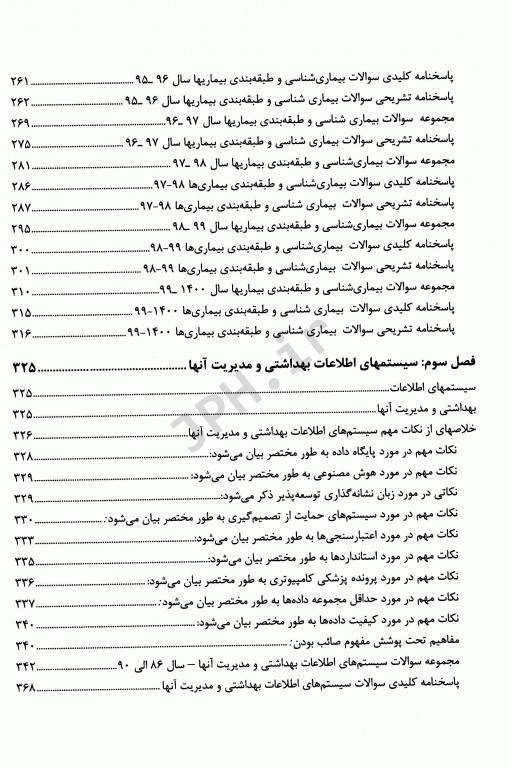 پاسخنامه کلیدی سوالات بیماری‌شناسی و طبقه‌بندی بیماریها سال ۹۶ ـ۹۵ ........ ۲۶۱
پاسخنامه تشریحی سوالات بیماری شناسی و طبقه‌بندی بیماریها سال ۹۶ ـ۹۵ ........ ۲۶۲
مجموعه سوالات بیماری شناسی و طبقه‌بندی بیماریها سال ۹۷ ـ۹۶ ........ ۲۶۹
پاسخنامه تشریحی سوالات بیماری شناسی و طبقه‌بندی بیماریها سال ۹۷ ـ۹۶ ........ ۲۷۵
مجموعه سوالات بیماری‌شناسی و طبقه‌بندی بیماریها سال ۹۸ ـ۹۷ ........ ۲۸۱
پاسخنامه کلیدی سوالات بیماری‌شناسی و طبقه‌بندی بیماری‌ها ۹۸-۹۷ ........ ۲۸۶
پاسخنامه تشریحی سوالات بیماری شناسی و طبقه‌بندی بیماری‌ها ۹۸-۹۷ ........ ۲۸۷
مجموعه سوالات بیماری‌شناسی و طبقه‌بندی بیماریها سال ۹۹ ـ۹۸ ........ ۲۹۵
پاسخنامه کلیدی سوالات بیماری‌شناسی و طبقه‌بندی بیماری‌ها ۹۹-۹۸ ........ ۳۰۰
پاسخنامه تشریحی سوالات بیماری شناسی و طبقه‌بندی بیماری‌ها ۹۹-۹۸ ........ ۳۰۱
مجموعه سوالات بیماری‌شناسی و طبقه‌بندی بیماریها سال ۱۴۰۰ ـ۹۹ ........ ۳۱۰
پاسخنامه کلیدی سوالات بیماری‌شناسی و طبقه‌بندی بیماری‌ها ۱۴۰۰-۹۹ ........ ۳۱۵
پاسخنامه تشریحی سوالات بیماری شناسی و طبقه‌بندی بیماری‌ها ۱۴۰۰-۹۹ ........ ۳۱۶
فصل سوم: سیستمهای اطلاعات بهداشتی و مدیریت آنها ........ ۳۲۵
سیستمهای اطلاعات ........ ۳۲۵
بهداشتی و مدیریت آنها ........ ۳۲۵
خلاصهای از نکات مهم سیستم‌های اطلاعات بهداشتی و مدیریت آنها ........ ۳۲۶
نکات مهم در مورد پایگاه داده به طور مختصر بیان می‌شود: ........ ۳۲۸
نکات مهم در مورد هوش مصنوعی به طور مختصر بیان می‌شود: ........ ۳۲۹
نکاتی در مورد زبان نشانه‌گذاری توسعه‌پذیر ذکر می‌شود: ........ ۳۲۹
نکات مهم در مورد سیستم‌های حمایت از تصمیم‌گیری به طور مختصر بیان می‌شود: ........ ۳۳۰
نکات مهم در مورد اعتبارسنجی‌ها به طور مختصر بیان می‌شود: ........ ۳۳۳
نکات مهم در مورد استانداردها به طور مختصر بیان می‌شود: ........ ۳۳۵
نکات مهم در مورد پرونده پزشکی کامپیوتری به طور مختصر بیان می‌شود: ........ ۳۳۶
نکات مهم در مورد حداقل مجموعه داده‌ها به طور مختصر بیان می‌شود: ........ ۳۳۷
نکات مهم در مورد کیفیت داده‌ها به طور مختصر بیان می‌شود: ........ ۳۴۰
مفاهیم تحت پوشش مفهوم صائب بودن: ........ ۳۴۰
مجموعه سوالات سیستم‌های اطلاعات بهداشتی و مدیریت آنها – سال ۸۶ الی ۹۰ ........ ۳۴۲
پاسخنامه کلیدی سوالات سیستم‌های اطلاعات بهداشتی و مدیریت آنها ........ ۳۶۸
JPH.ir